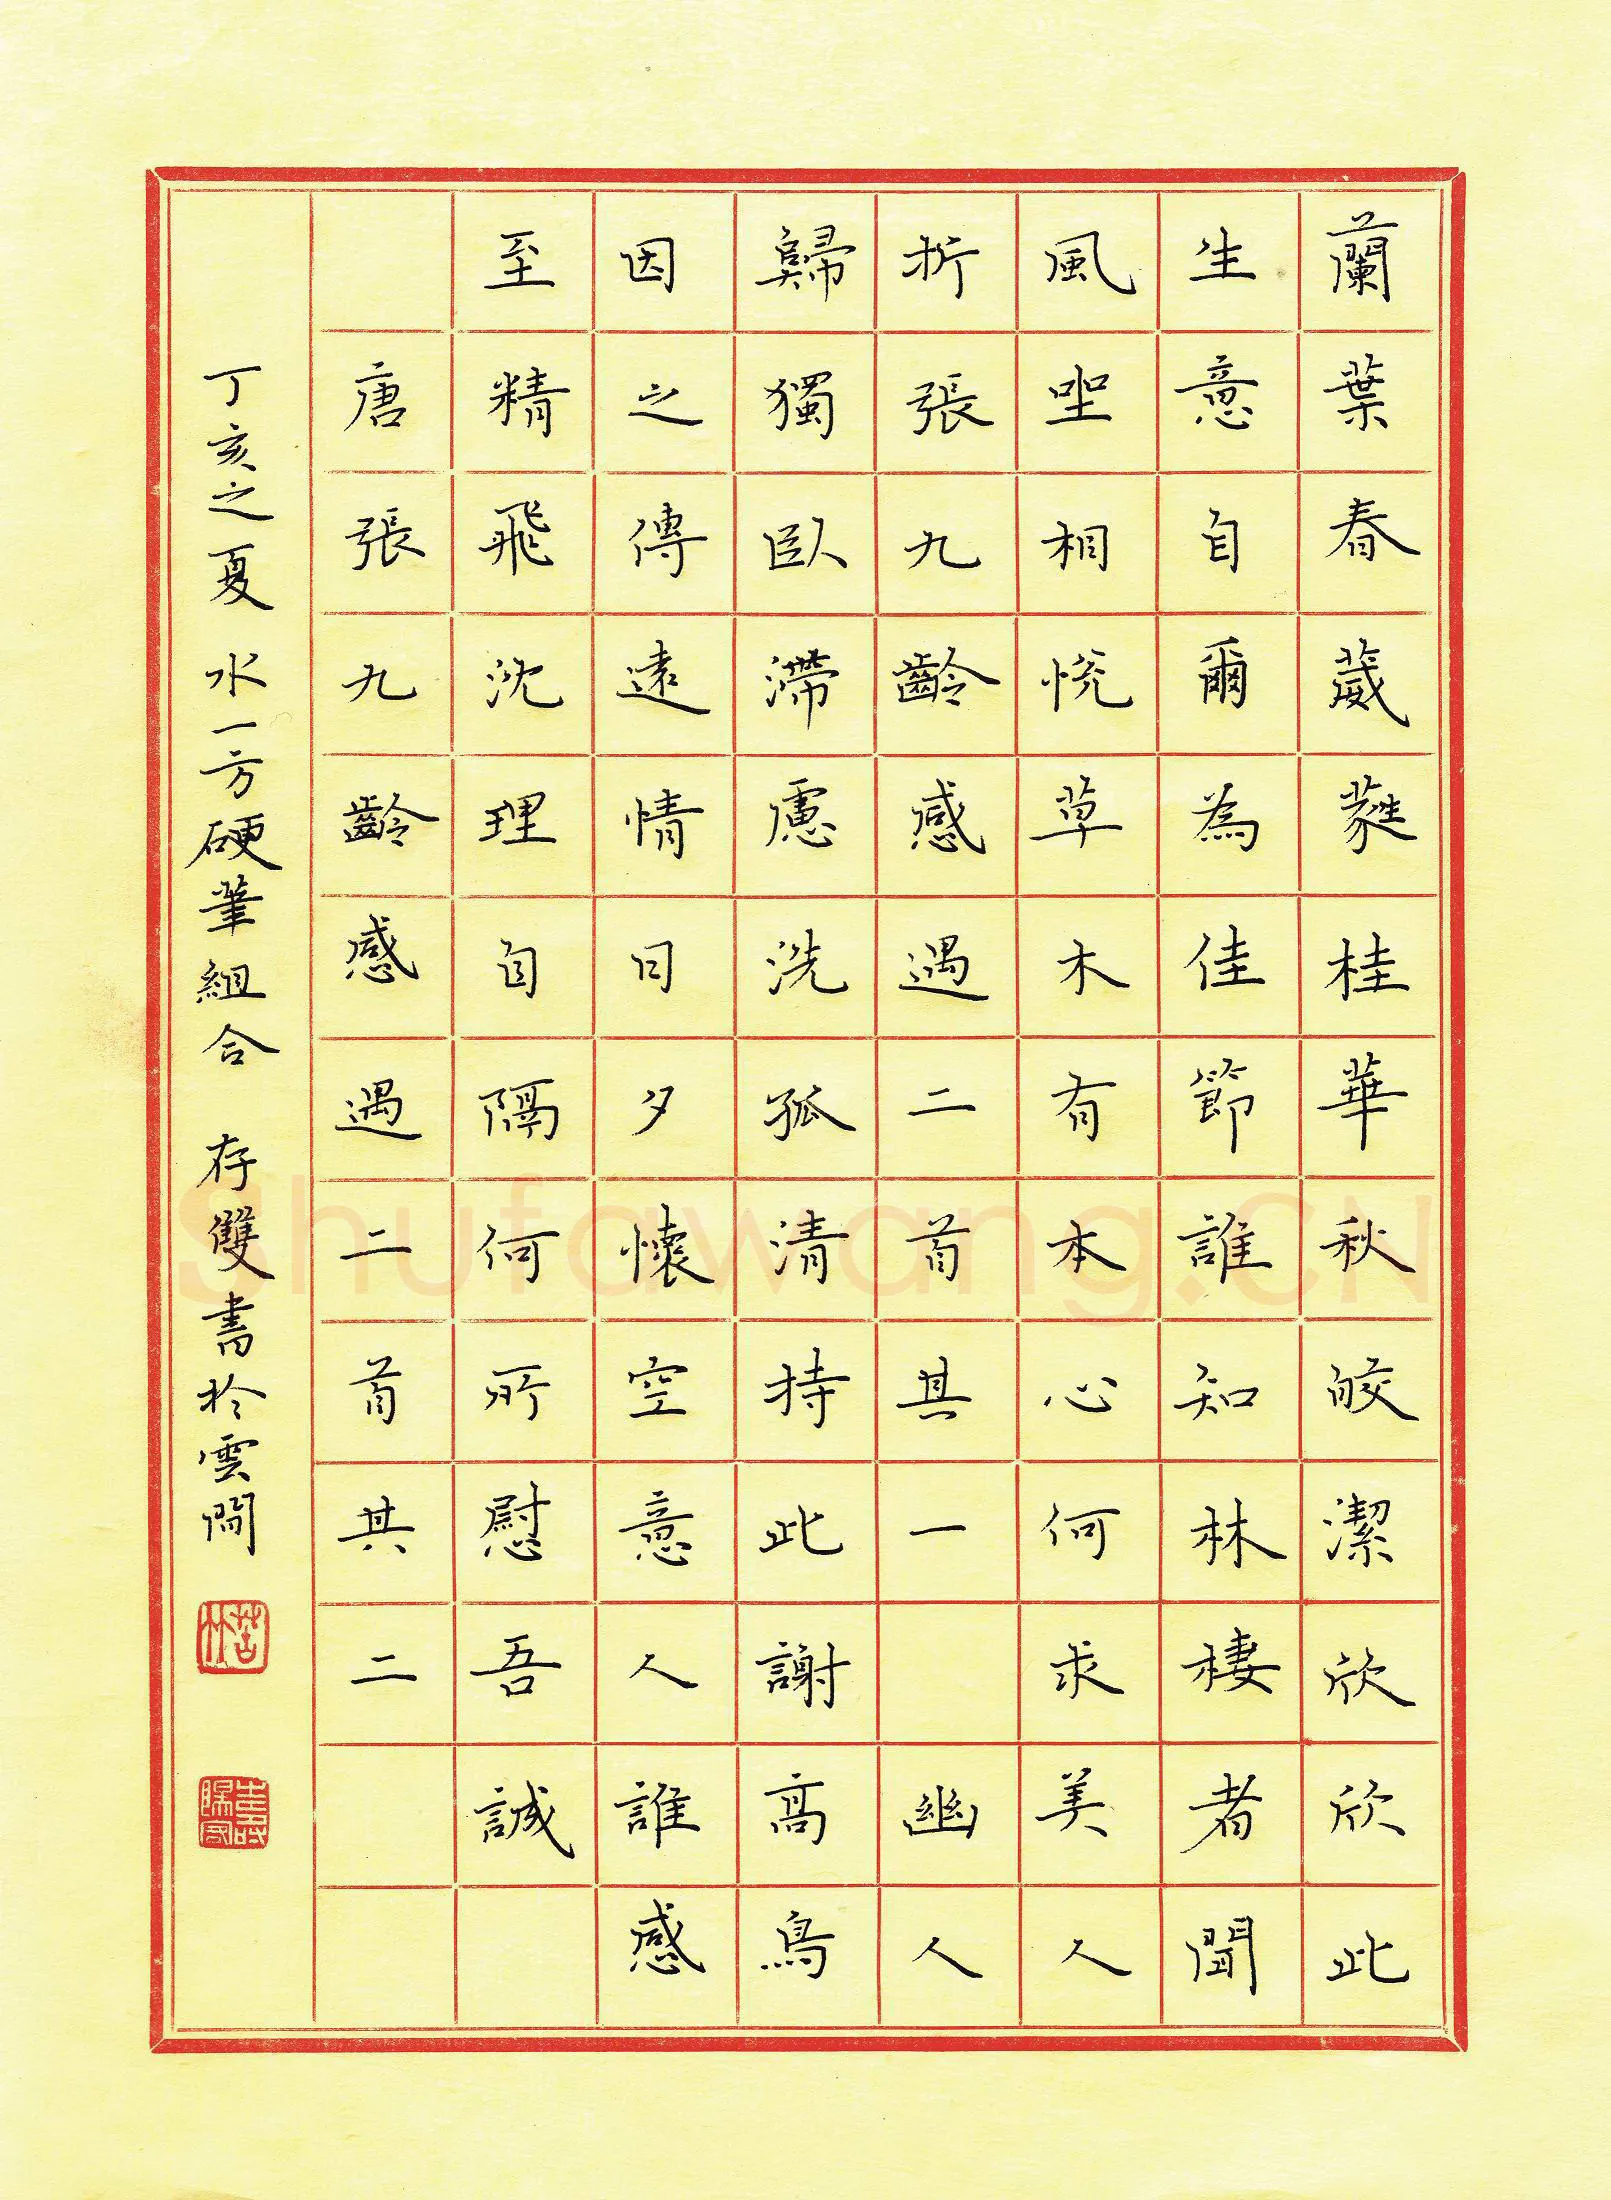 蘭葉春葳蕤桂華秋皎潔欣欣此
生意自爾為佳節誰知林棲者聞
風坐相悅草木有本心何求美人
折張九齡感遇二首其一 幽人
歸獨臥滯慮洗孤清持此謝高鳥
因之傳遠情日夕懷空意人誰感
至精飛沈理自隔何所慰吾誠
唐張九齡感遇二首其二
丁亥之夏 水一方硬筆組合 存雙書於雲間
Shufawang.CN